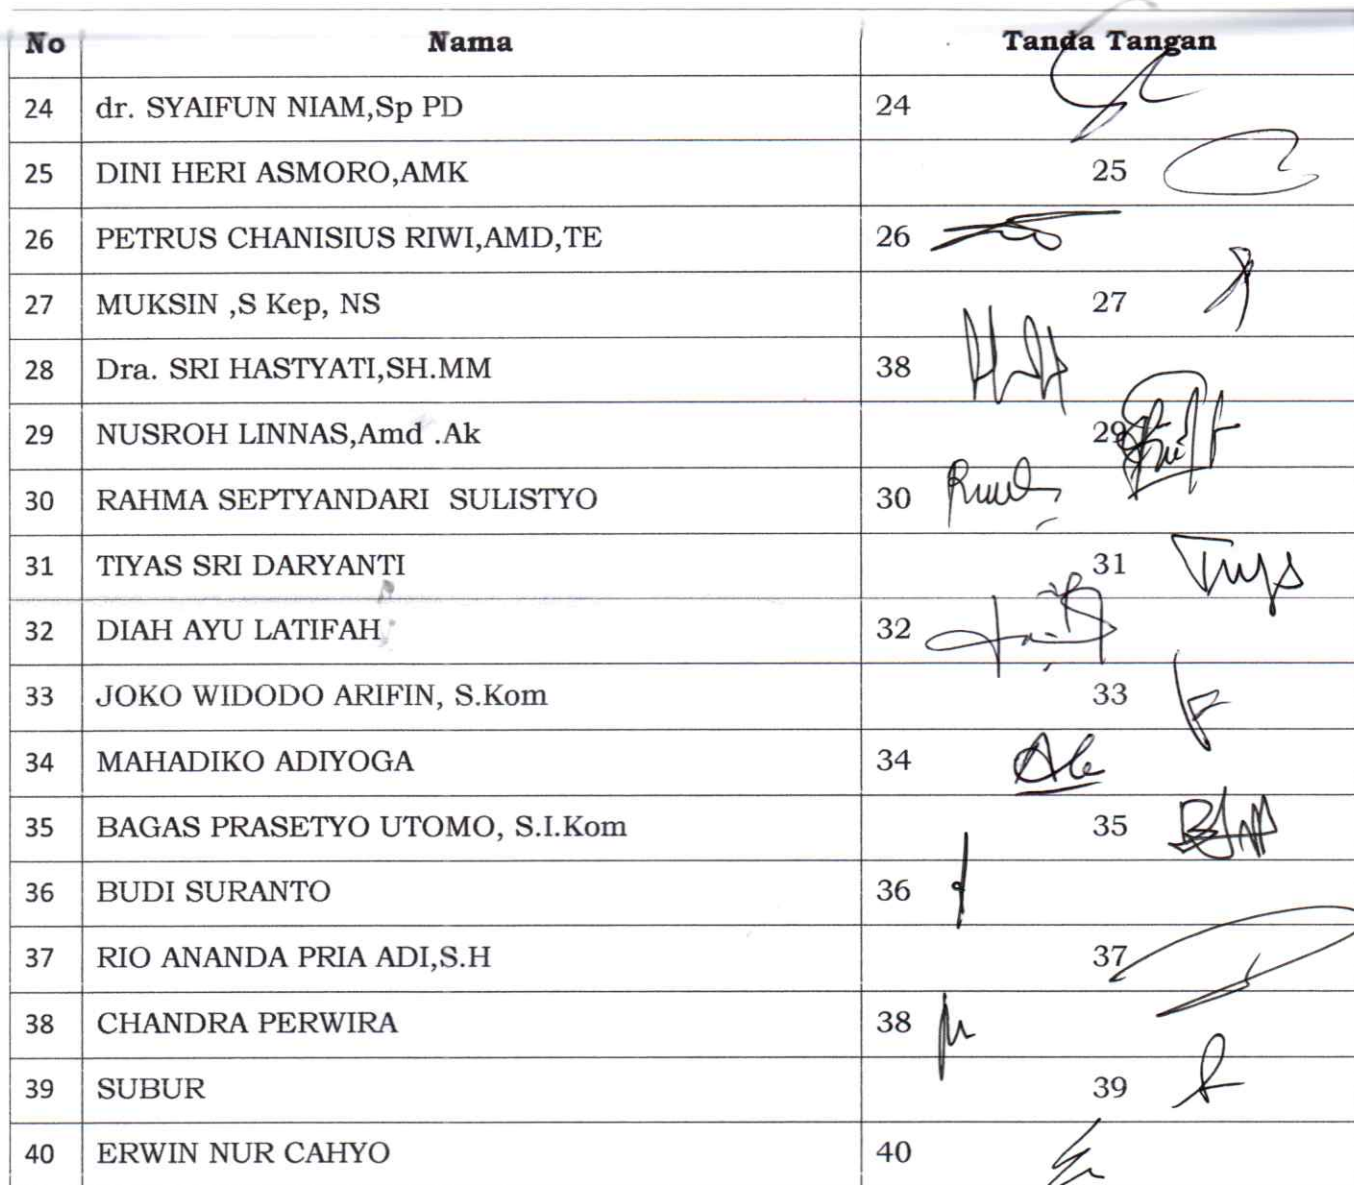 No Nama Tanda Tangan
24 dr. SYAIFUN NIAM,Sp PD 24
25 DINI HERI ASMORO,AMK 25
26 PETRUS CHANISIUS RIWI,AMD,TE 26
27 MUKSIN ,S Kep, NS 27
28 Dra. SRI HASTYATI,SH.MM 38
29 NUSROH LINNAS,Amd .Ak 29
30 RAHMA SEPTYANDARI SULISTYO 30
31 TIYAS SRI DARYANTI 31
32 DIAH AYU LATIFAH 32
33 JOKO WIDODO ARIFIN, S.Kom 33
34 MAHADIKO ADIYOGA 34
35 BAGAS PRASETYO UTOMO, S.I.Kom 35
36 BUDI SURANTO 36
37 RIO ANANDA PRIA ADI,S.H 37
38 CHANDRA PERWIRA 38
39 SUBUR 39
40 ERWIN NUR CAHYO 40